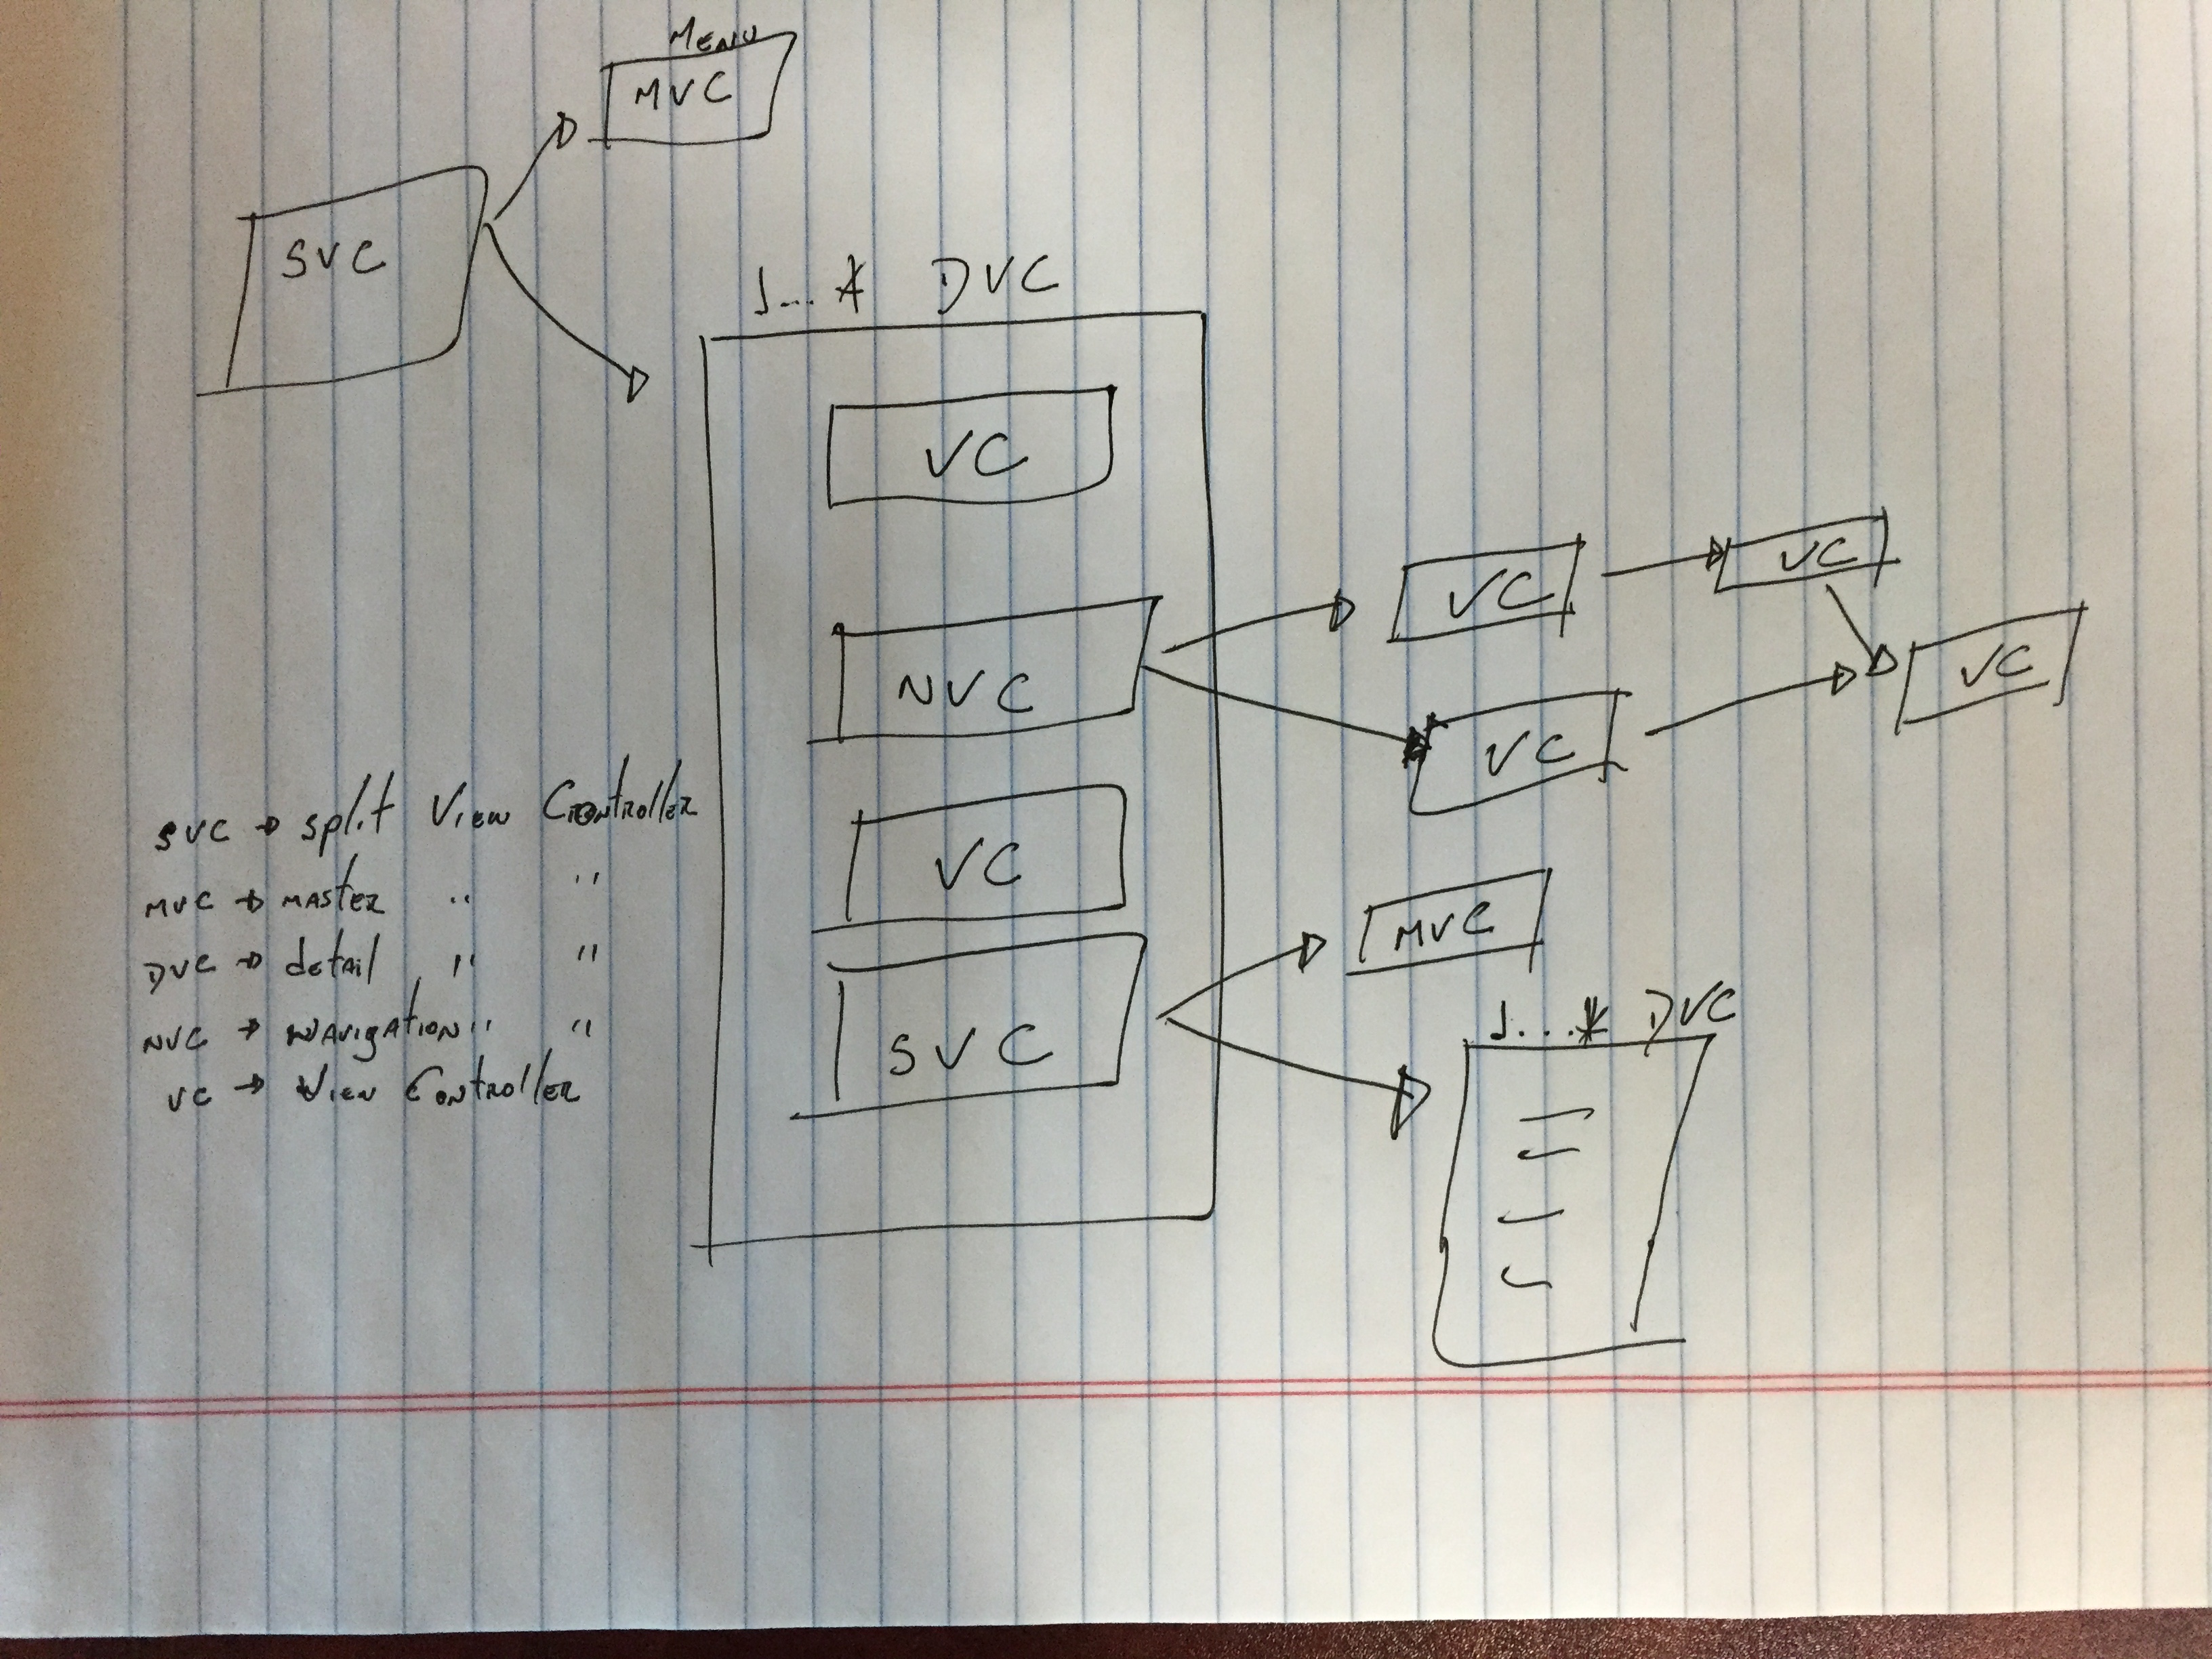 MENU
MVC
SVC
1...* DVC
VC
VC
VC
VC
NVC
VC
VC
MVC
SVC
1...* DVC
SVC → split View Controller
MVC → MASTER " "
DVC → detail " "
NVC → NAvigATION " "
VC → View Controller